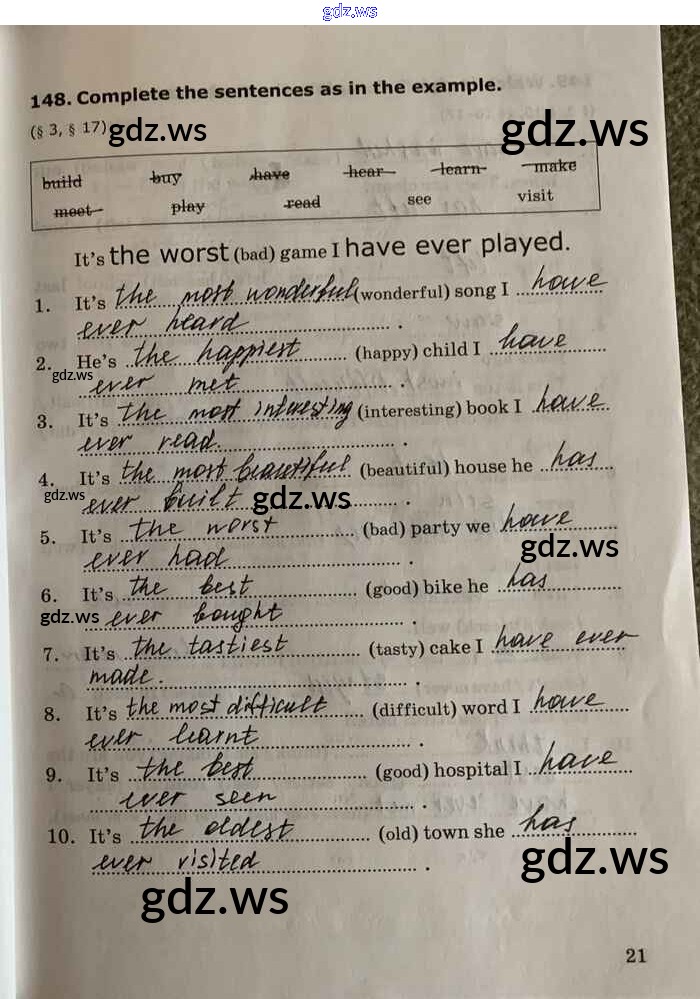 gdz.ws
148. Complete the sentences as in the example.
(§ 3, § 17) gdz.ws gdz.ws
build buy have hear learn make
meet play read see visit
It's the worst (bad) game I have ever played.
1. It's the most wonderful (wonderful) song I have
ever heard.
2. He's the happiest (happy) child I have
gdz.ws
ever met.
3. It's the most interesting (interesting) book I have
ever read.
4. It's the most beautiful (beautiful) house he has
gdz.ws
ever built. gdz.ws
5. It's the worst (bad) party we have
ever had. gdz.ws
6. It's the best (good) bike he has
gdz.ws
ever bought.
7. It's the tastiest (tasty) cake I have ever
made.
8. It's the most difficult (difficult) word I have
ever learnt.
9. It's the best (good) hospital I have
ever seen.
10. It's the oldest (old) town she has
ever visited. gdz.ws
gdz.ws
21